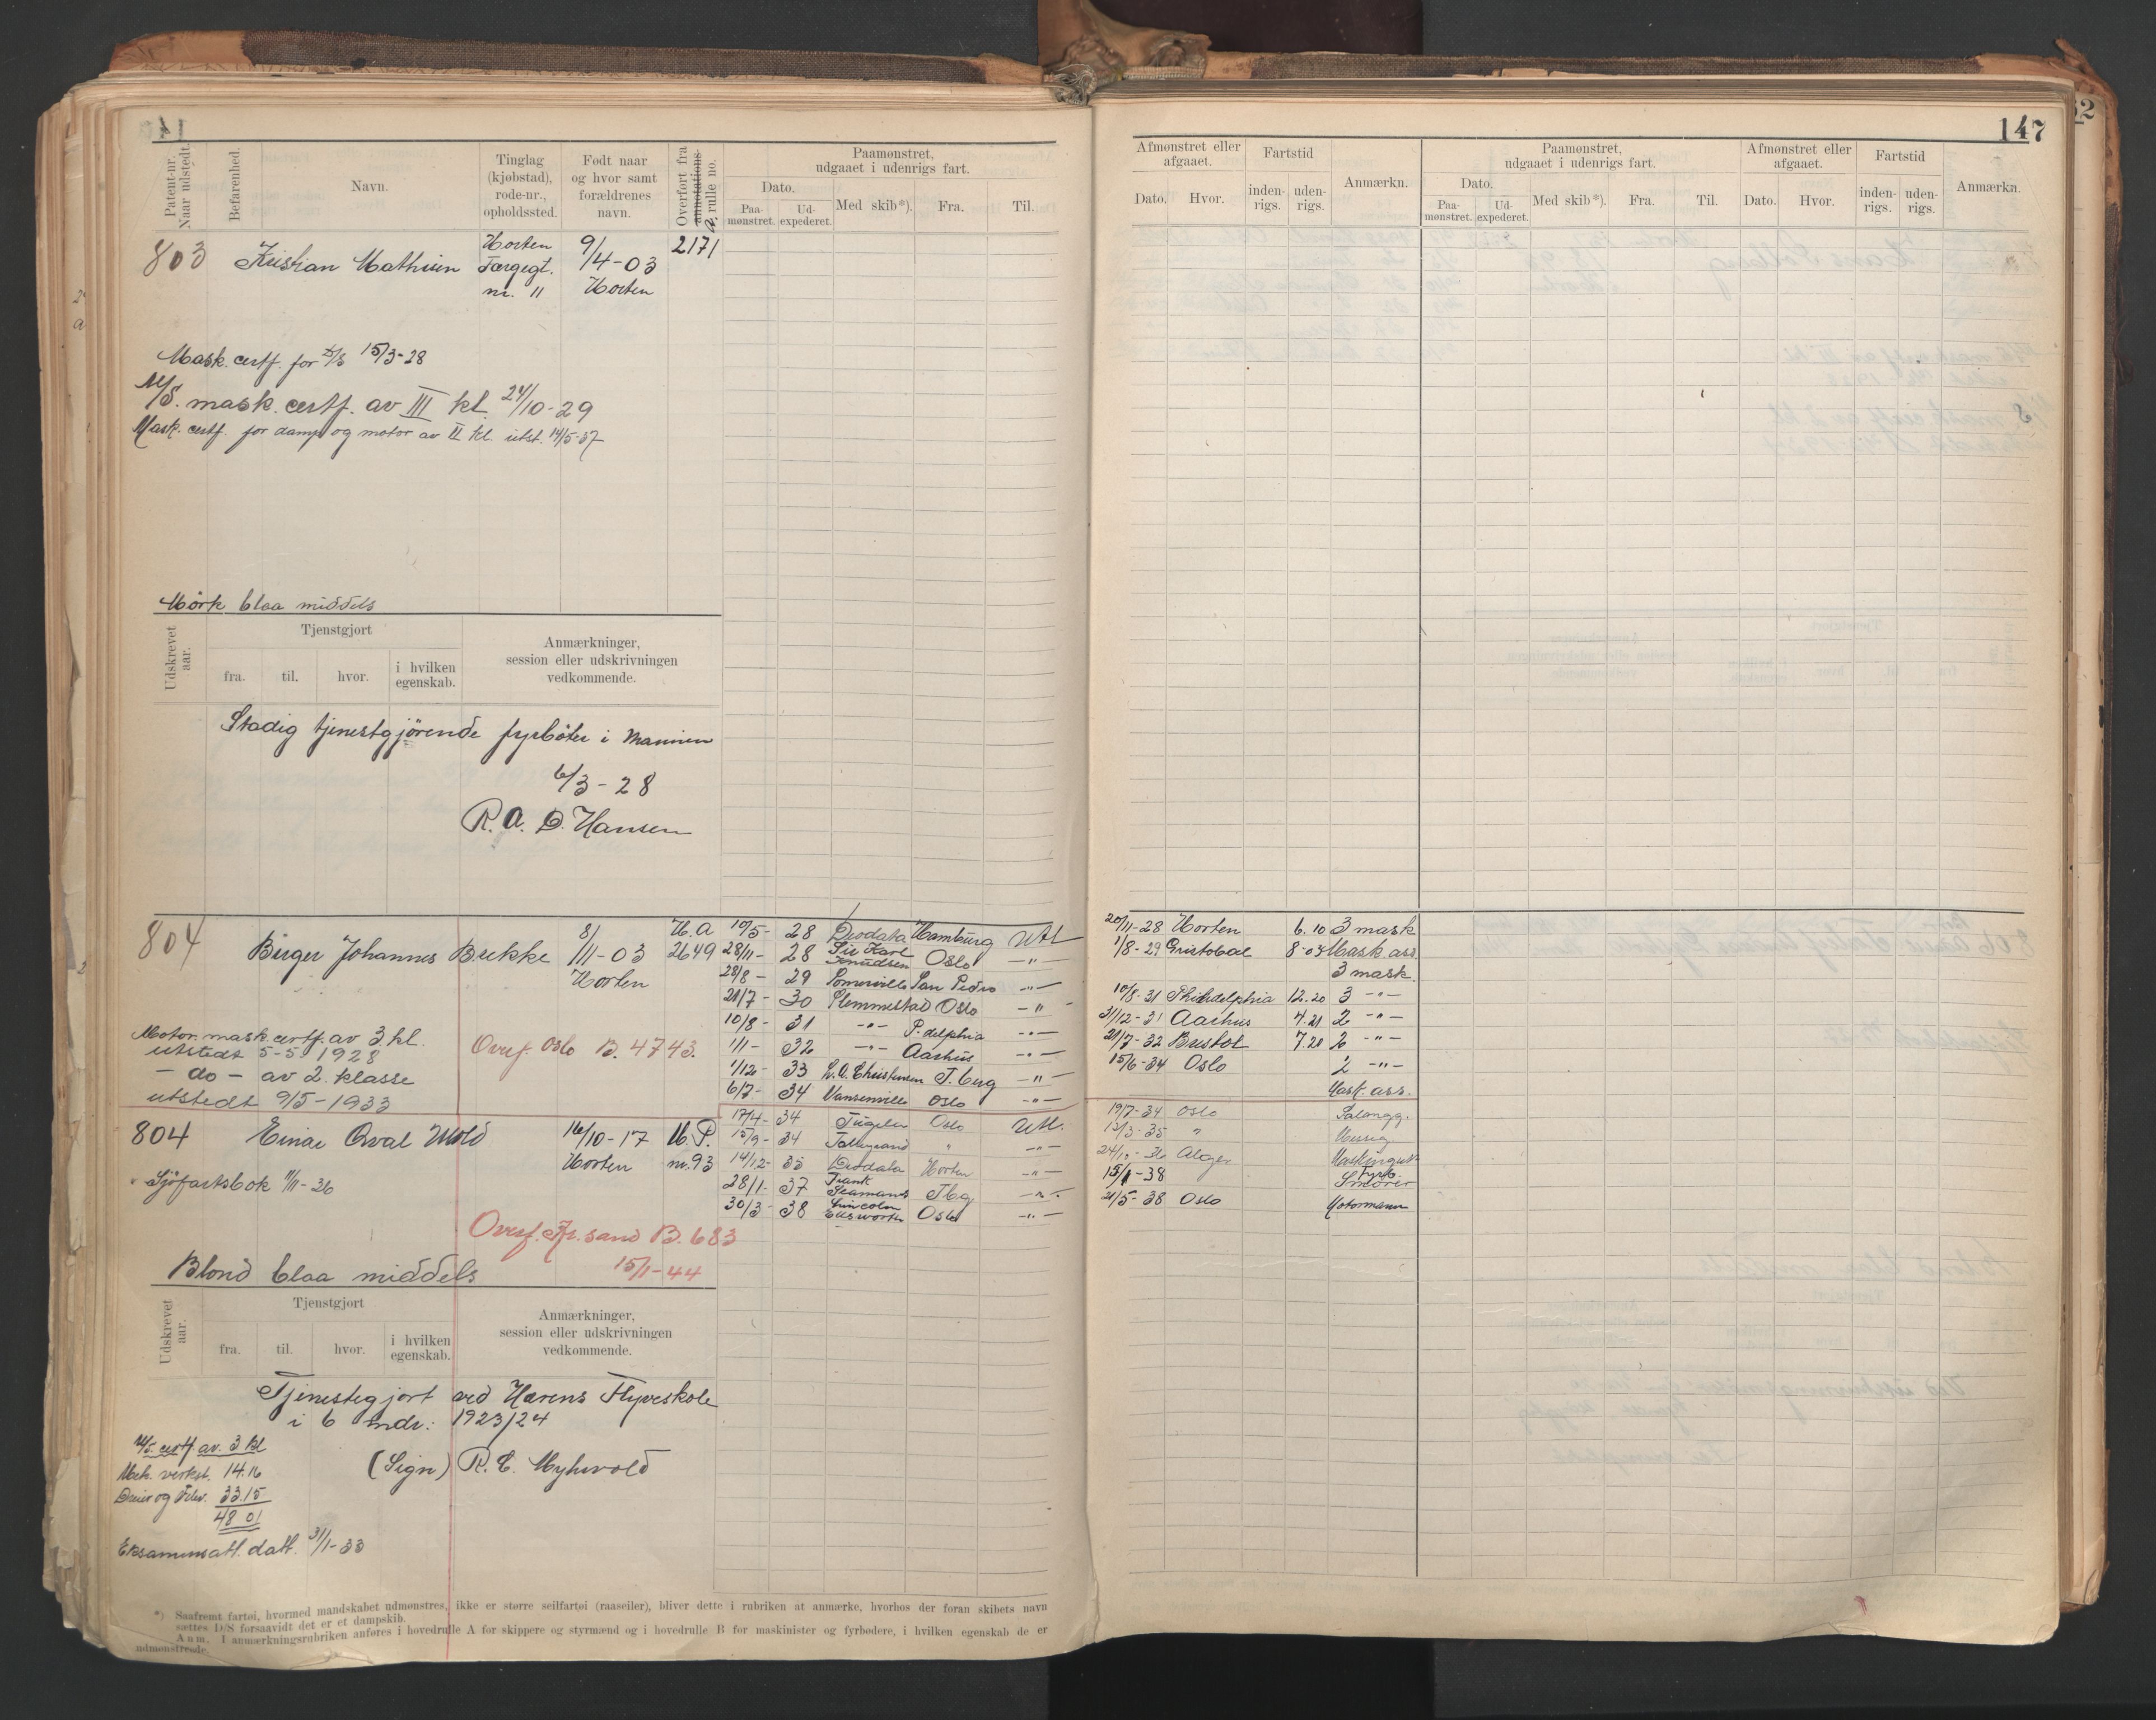 147
Patent-nr. Naar udstedt.
Befarenhed.
Navn.
Tinglag (kjøbstad), rode-nr., opholdssted.
Født naar og hvor samt forældrenes navn.
Overført fra annotations- rulle no.
Paamønstret, udgaaet i udenrigs fart.
Dato.
Paa-mønstret.
Ud-expederet.
Med skib*).
Fra.
Til.
Afmønstret eller afgaaet.
Dato.
Hvor.
Fartstid
inden-rigs.
uden-rigs.
Anmærkn.
Paamønstret, udgaaet i udenrigs fart.
Dato.
Paa-mønstret.
Ud-expederet.
Med skib*).
Fra.
Til.
Afmønstret eller afgaaet.
Dato.
Hvor.
Fartstid
inden-rigs.
uden-rigs.
Anmærkn.
803 Kristian Mathisen Horten 9/4-03 2171
nr. 11 Horten
Mask. certf. for D/S 15/3-28
M/S. mask. certf. av III kl. 24/10-29
Mask. certf. for damp og motor av II kl. utst. 14/5-37
Mörk blaa middels
Udskrevet aar.
Tjenstgjort
fra. til. hvor. i hvilken egenskab.
Anmærkninger, session eller udskrivningen vedkommende.
Stadig tjenestgjörende fyrböter i Marinen
6/3-28
R. A. O. Hansen
804 Birger Johannes Brekke 8/11-03 Horten H.A 2649
Motor. mask. certf. av 3 kl.
utstedt 5-5 1928
- do - av 2. klasse
utstedt 9/5-1933
Overf. Oslo B. 4743.
19/5- 28 Deodata Hamburg Utl 20/11-28 Horten 6.10 3 mask
28/11- 28 Sir Karl Knudsen Oslo -"- 1/8-29 Cristobal 8-03 Mask ass
28/8- 29 Somerville San Pedro -"- 3 mask.
21/7- 30 Slemmestad Oslo -"- 10/8-31 Philadelphia 12.20 3 -"-
10/8- 31 -"- P.delphia -"- 31/12-31 Aarhus 4.21 2 -"-
1/1- 32 -"- Aarhus -"- 21/7-32 Bristol 7.20 2 -"-
1/12- 33 L.A. Christensen T.berg -"- 15/6-34 Oslo 2 -"-
6/7- 34 Vansenville Oslo -"- Mask. ass.
804 Einar Orval Wold 16/10-17 Horten H.P. nr. 93
Sjöfartsbok 11/11-36
17/4- 34 Tugela Oslo Utl. 19/7-34 Oslo Salongg.
15/9- 34 Talleyrand " -"- 13/3-35 " Messg.
14/12- 35 Deodata Horten -"- 24/10-36 Alger Maskingutt
28/1- 37 Frank Seamans Tbg -"- 15/1-38 Fyrb. Smører
30/3- 38 Lincoln Ellsworth Oslo -"- 21/5-38 Oslo Motormann
Overf. Kr. sand B. 683
15/1-44
Blond blaa middels
Udskrevet aar.
Tjenstgjort
fra. til. hvor. i hvilken egenskab.
Anmærkninger, session eller udskrivningen vedkommende.
Tjenestegjort ved Hærens Flyveskole
i 6 mdr: 1923/24
(Sign) R. E. Myhrvold
M/S. certf. av. 3 kl
Mek. verkst. 14.16
33.15
48 01
Eksamensatt. datt. 31/1-33
*) Saafremt fartøi, hvormed mandskabet udmønstres, ikke er større seilfartøi (raaseiler), bliver dette i rubriken at anmærke, hvorhos der foran skibets navn
sættes D/S forsaavidt det er et dampskib.
Anm. I anmærkningsrubriken anføres i hovedrulle A for skippere og styrmænd og i hovedrulle B for maskinister og fyrbødere, i hvilken egenskab de er
udmønstrede.